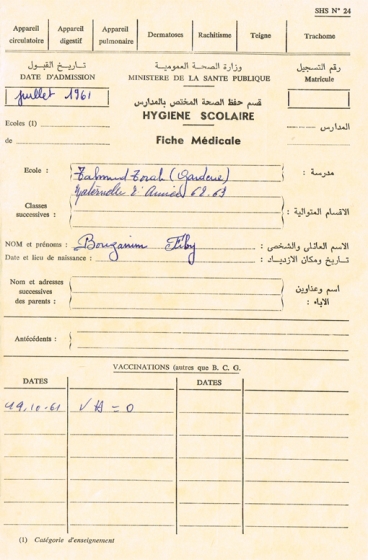 SHS N° 24
Appareil circulatoire
Appareil digestif
Appareil pulmonaire
Dermatoses
Rachitisme
Teigne
Trachome
تاريخ القبول
وزارة الصحة العمومية
رقم التسجيل
DATE D'ADMISSION
MINISTERE DE LA SANTE PUBLIQUE
Matricule
juillet 1961
قسم حفظ الصحة المختص بالمدارس
HYGIENE SCOLAIRE
Ecoles (1)
المدارس
de
Fiche Médicale
Ecole : Talmud Torah (Garderie)
مدرسة :
Maternelle 2° Année 62.63
Classes successives :
الاقسام المتوالية :
NOM et prénoms : Bouganim
الاسم العائلي والشخصي :
Date et lieu de naissance :
تاريخ ومكان الازدياد :
Nom et adresses successives des parents :
اسم وعناوين الاباء :
Antécédents :
VACCINATIONS (autres que B. C. G.
DATES
DATES
19.10.61
= 0
(1) Catégorie d'enseignement